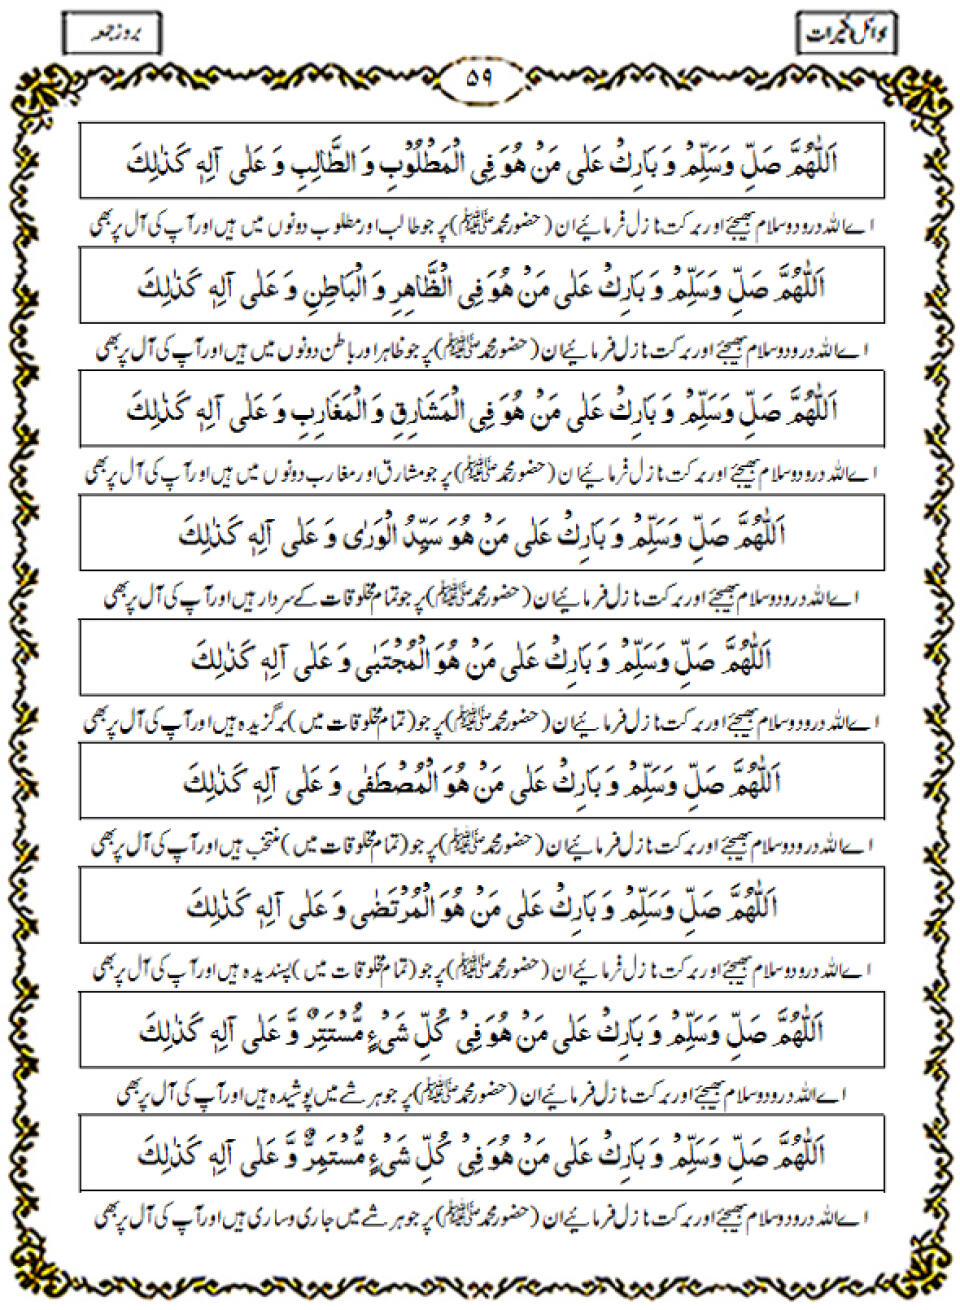 بروز جمعہ
۵۹
اَللّٰهُمَّ صَلِّ وَسَلِّمْ وَ بَارِكْ عَلٰى مَنْ هُوَ فِى الْمَطْلُوْبِ وَ الطَّالِبِ وَ عَلٰى آلِهٖ كَذٰلِكَ
اے اللہ درود و سلام بھیجئے اور برکت نازل فرمائیے ان (حضور محمد ﷺ) پر جو طالب اور مطلوب دونوں میں ہیں اور آپ کی آل پر بھی
اَللّٰهُمَّ صَلِّ وَسَلِّمْ وَ بَارِكْ عَلٰى مَنْ هُوَ فِى الْظَّاهِرِ وَ الْبَاطِنِ وَ عَلٰى آلِهٖ كَذٰلِكَ
اے اللہ درود و سلام بھیجئے اور برکت نازل فرمائیے ان (حضور محمد ﷺ) پر جو ظاہر اور باطن دونوں میں ہیں اور آپ کی آل پر بھی
اَللّٰهُمَّ صَلِّ وَسَلِّمْ وَ بَارِكْ عَلٰى مَنْ هُوَ فِى الْمَشَارِقِ وَ الْمَغَارِبِ وَ عَلٰى آلِهٖ كَذٰلِكَ
اے اللہ درود و سلام بھیجئے اور برکت نازل فرمائیے ان (حضور محمد ﷺ) پر جو مشارق اور مغارب دونوں میں ہیں اور آپ کی آل پر بھی
اَللّٰهُمَّ صَلِّ وَسَلِّمْ وَ بَارِكْ عَلٰى مَنْ هُوَ سَيِّدُ الْوَرٰى وَ عَلٰى آلِهٖ كَذٰلِكَ
اے اللہ درود و سلام بھیجئے اور برکت نازل فرمائیے ان (حضور محمد ﷺ) پر جو تمام مخلوقات کے سردار ہیں اور آپ کی آل پر بھی
اَللّٰهُمَّ صَلِّ وَسَلِّمْ وَ بَارِكْ عَلٰى مَنْ هُوَ الْمُجْتَبٰى وَ عَلٰى آلِهٖ كَذٰلِكَ
اے اللہ درود و سلام بھیجئے اور برکت نازل فرمائیے ان (حضور محمد ﷺ) پر جو (تمام مخلوقات میں) برگزیدہ ہیں اور آپ کی آل پر بھی
اَللّٰهُمَّ صَلِّ وَسَلِّمْ وَ بَارِكْ عَلٰى مَنْ هُوَ الْمُصْطَفٰى وَ عَلٰى آلِهٖ كَذٰلِكَ
اے اللہ درود و سلام بھیجئے اور برکت نازل فرمائیے ان (حضور محمد ﷺ) پر جو (تمام مخلوقات میں) منتخب ہیں اور آپ کی آل پر بھی
اَللّٰهُمَّ صَلِّ وَسَلِّمْ وَ بَارِكْ عَلٰى مَنْ هُوَ الْمُرْتَضٰى وَ عَلٰى آلِهٖ كَذٰلِكَ
اے اللہ درود و سلام بھیجئے اور برکت نازل فرمائیے ان (حضور محمد ﷺ) پر جو (تمام مخلوقات میں) پسندیدہ ہیں اور آپ کی آل پر بھی
اَللّٰهُمَّ صَلِّ وَسَلِّمْ وَ بَارِكْ عَلٰى مَنْ هُوَ فِىْ كُلِّ شَىْءٍ مُّسْتَتِرٌ وَّ عَلٰى آلِهٖ كَذٰلِكَ
اے اللہ درود و سلام بھیجئے اور برکت نازل فرمائیے ان (حضور محمد ﷺ) پر جو ہر شے میں پوشیدہ ہیں اور آپ کی آل پر بھی
اَللّٰهُمَّ صَلِّ وَسَلِّمْ وَ بَارِكْ عَلٰى مَنْ هُوَ فِىْ كُلِّ شَىْءٍ مُّسْتَمِرٌّ وَّ عَلٰى آلِهٖ كَذٰلِكَ
اے اللہ درود و سلام بھیجئے اور برکت نازل فرمائیے ان (حضور محمد ﷺ) پر جو ہر شے میں جاری و ساری ہیں اور آپ کی آل پر بھی